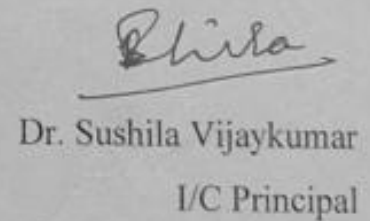 Dr. Sushila Vijaykumar
I/C Principal